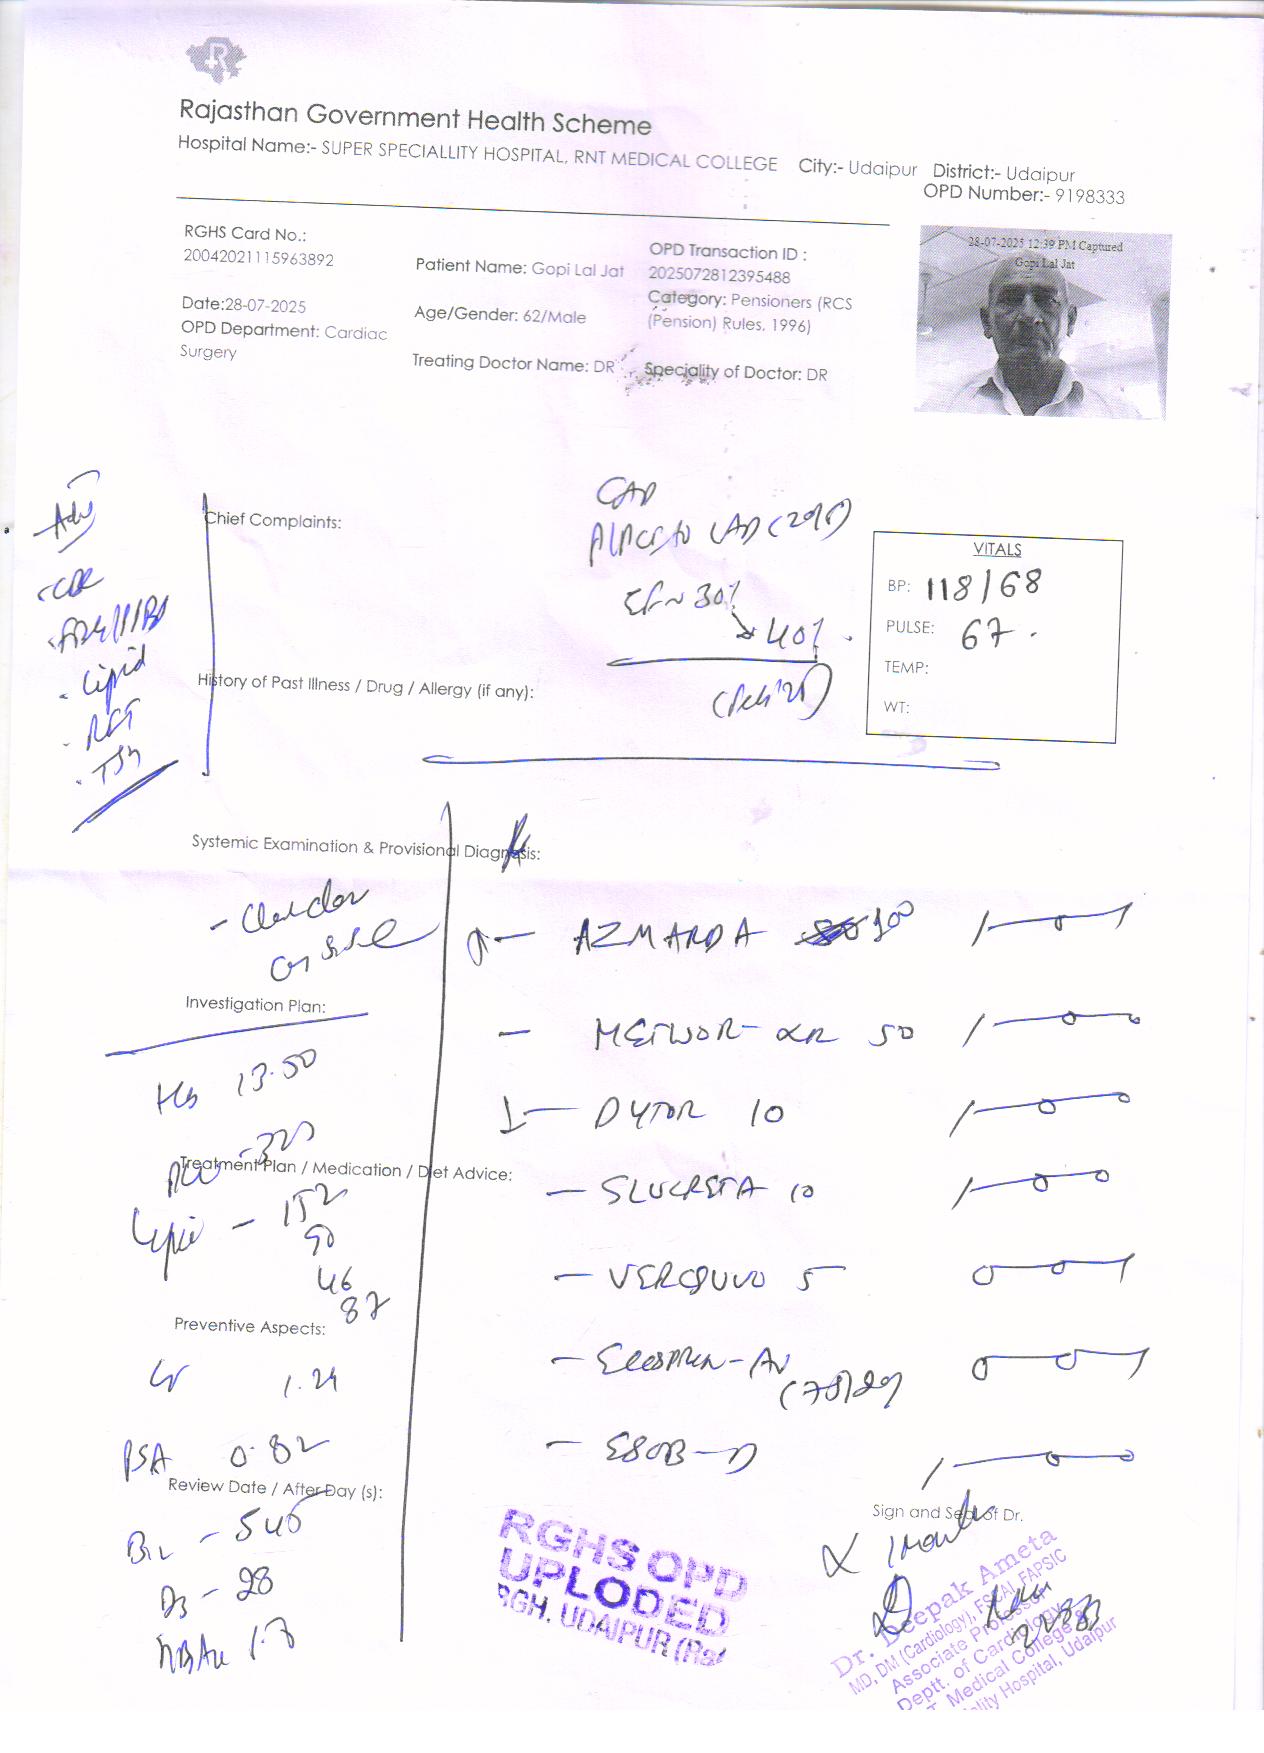 R
Rajasthan Government Health Scheme
Hospital Name:- SUPER SPECIALLITY HOSPITAL, RNT MEDICAL COLLEGE City:- Udaipur District:- Udaipur
OPD Number:- 9198333
RGHS Card No.:
20042021115963892
Date:28-07-2025
OPD Department: Cardiac
Surgery
Patient Name: Gopi Lal Jat
Age/Gender: 62/Male
Treating Doctor Name: DR
OPD Transaction ID :
2025072812395488
Category: Pensioners (RCS
(Pension) Rules, 1996)
Speciality of Doctor: DR
28-07-2025 12:39 PM Captured
Gopi Lal Jat
Adv
- CBC
- Lipid
- RFT
- TSH
Chief Complaints:
CAD
to LAD
EF ~ 30%
40%
History of Past Illness / Drug / Allergy (if any):
VITALS
BP: 118/68
PULSE: 67
TEMP:
WT:
Systemic Examination & Provisional Diagnosis:
Investigation Plan:
Hb 13.50
Treatment Plan / Medication / Diet Advice:
Lipid - 152
90
46
87
Preventive Aspects:
Cr 1.24
PSA 0.82
Review Date / After Day (s):
B12 - 546
D3 - 28
AZMARDA 100 1—0—1
- METWOR-XR 50 1—0—0
DYTOR 10 1—0—0
- SLUCRETA 10 1—0—0
- VERQUVO 5 0—0—1
- ECOSPRIN-AV 0—0—1
(75/20)
- ESOB-D 1—0—0
Sign and Seal of Dr.
x 1 month
RGHS OPD
UPLODED
RGH. UDAIPUR (Raj
Dr. Deepak Ameta
MD, DM (Cardiology), FSCAI, FAPSIC
Associate Professor
Deptt. of Cardiology
Medical College &
Hospital, Udaipur